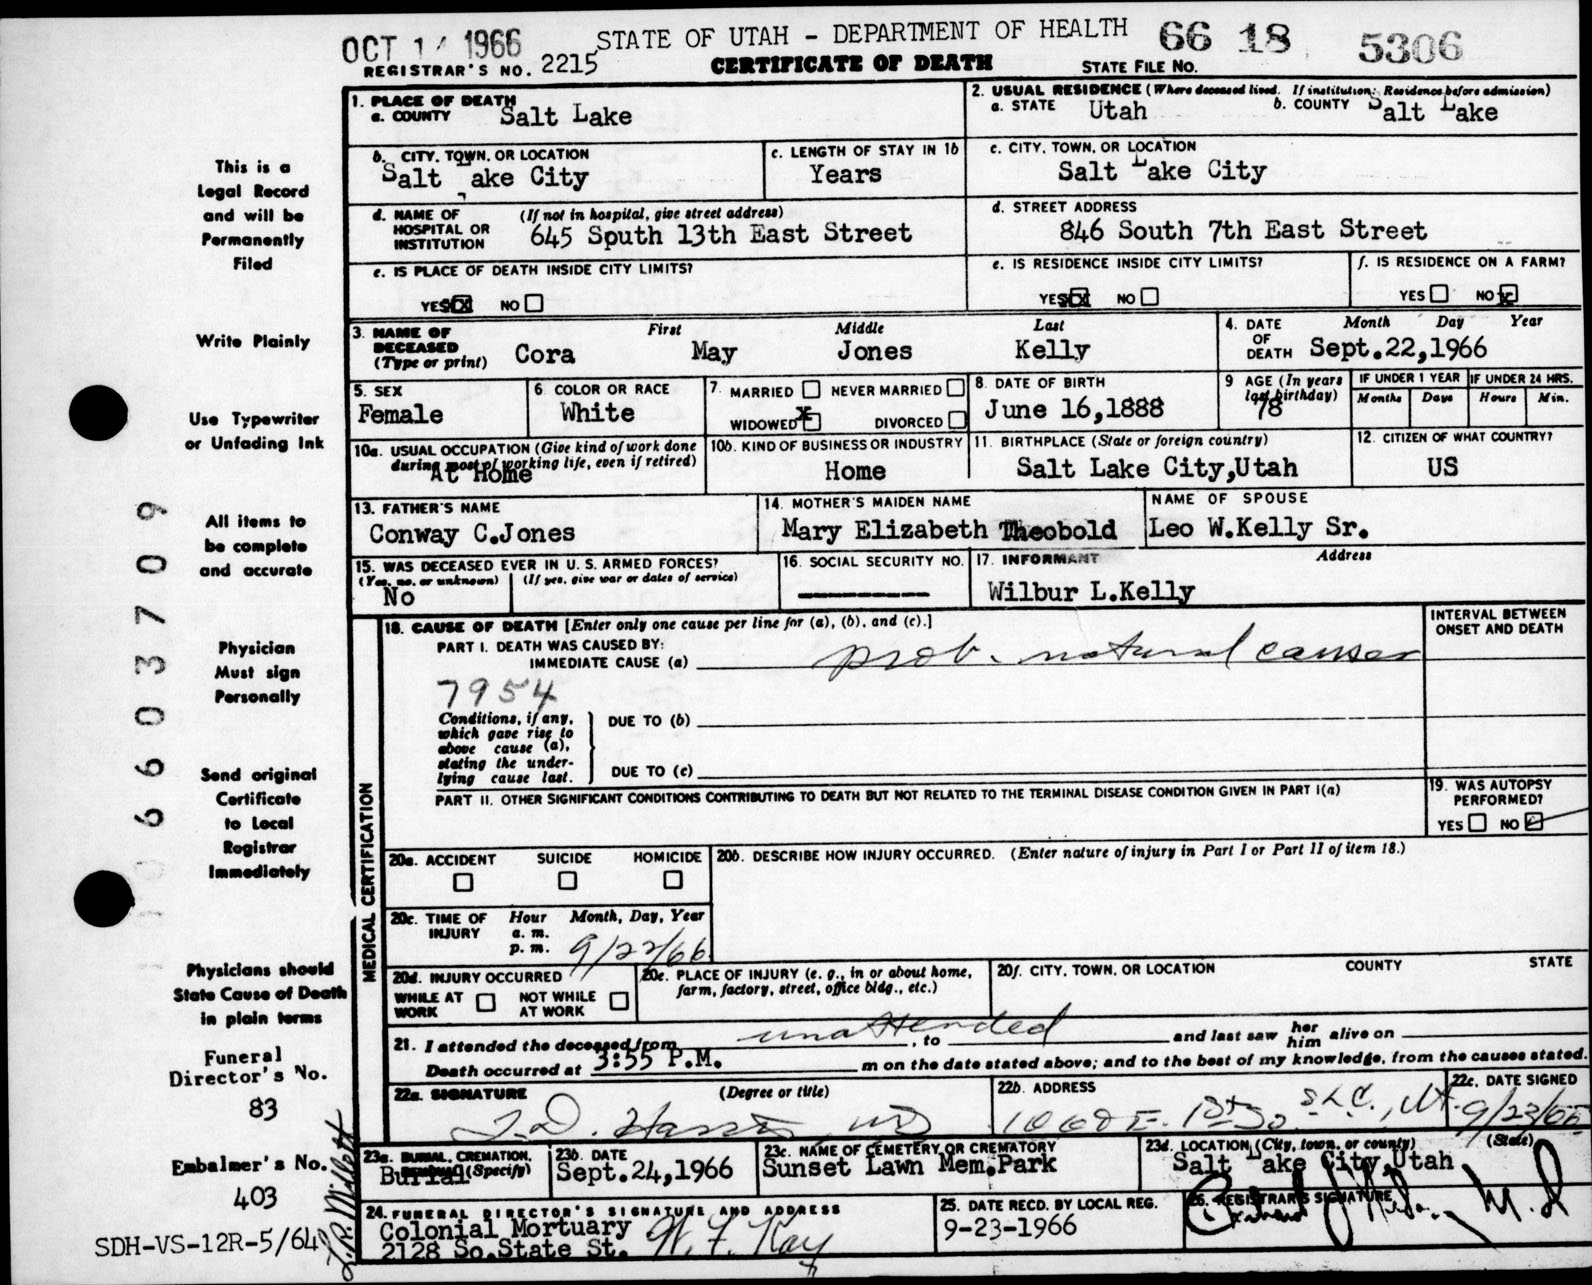 OCT 1 1966 STATE OF UTAH - DEPARTMENT OF HEALTH 66 18 5306
REGISTRAR'S NO. 2215 CERTIFICATE OF DEATH STATE FILE NO.
This is a
Legal Record
and will be
Permanently
Filed
Write Plainly
Use Typewriter
or Unfading Ink
All items to
be complete
and accurate
Physician
Must sign
Personally
Send original
Certificate
to Local
Registrar
Immediately
Physicians should
State Cause of Death
in plain terms
Funeral
Director's No.
83
Embalmer's No.
403
SDH-VS-12R-5/64
6603709
1. PLACE OF DEATH
a. COUNTY Salt Lake
2. USUAL RESIDENCE (Where deceased lived. If institution: Residence before admission)
a. STATE Utah b. COUNTY Salt Lake
b. CITY, TOWN, OR LOCATION
Salt Lake City
c. LENGTH OF STAY IN 1b
Years
c. CITY, TOWN, OR LOCATION
Salt Lake City
d. NAME OF HOSPITAL OR INSTITUTION (If not in hospital, give street address)
645 Sputh 13th East Street
d. STREET ADDRESS
846 South 7th East Street
e. IS PLACE OF DEATH INSIDE CITY LIMITS?
YES NO
e. IS RESIDENCE INSIDE CITY LIMITS?
YES NO
f. IS RESIDENCE ON A FARM?
YES NO
3. NAME OF DECEASED (Type or print) First Middle Last
Cora May Jones Kelly
4. DATE OF DEATH Month Day Year
Sept.22,1966
5. SEX
Female
6. COLOR OR RACE
White
7. MARRIED NEVER MARRIED
WIDOWED DIVORCED
8. DATE OF BIRTH
June 16,1888
9 AGE (In years last birthday)
78
IF UNDER 1 YEAR
Months Days
IF UNDER 24 HRS.
Hours Min.
10a. USUAL OCCUPATION (Give kind of work done during most of working life, even if retired)
At Home
10b. KIND OF BUSINESS OR INDUSTRY
Home
11. BIRTHPLACE (State or foreign country)
Salt Lake City,Utah
12. CITIZEN OF WHAT COUNTRY?
US
13. FATHER'S NAME
Conway C.Jones
14. MOTHER'S MAIDEN NAME
Mary Elizabeth Theobold
NAME OF SPOUSE
Leo W.Kelly Sr.
15. WAS DECEASED EVER IN U. S. ARMED FORCES?
(Yes, no, or unknown) (If yes, give war or dates of service)
No
16. SOCIAL SECURITY NO.
17. INFORMANT Address
Wilbur L.Kelly
MEDICAL CERTIFICATION
18. CAUSE OF DEATH [Enter only one cause per line for (a), (b), and (c).]
INTERVAL BETWEEN
ONSET AND DEATH
PART I. DEATH WAS CAUSED BY:
IMMEDIATE CAUSE (a) prob. natural causes
7954
Conditions, if any,
which gave rise to
above cause (a),
stating the under-
lying cause last.
DUE TO (b)
DUE TO (c)
PART II. OTHER SIGNIFICANT CONDITIONS CONTRIBUTING TO DEATH BUT NOT RELATED TO THE TERMINAL DISEASE CONDITION GIVEN IN PART I(a)
19. WAS AUTOPSY PERFORMED?
YES NO
20a. ACCIDENT SUICIDE HOMICIDE
20b. DESCRIBE HOW INJURY OCCURRED. (Enter nature of injury in Part I or Part II of item 18.)
20c. TIME OF INJURY Hour Month, Day, Year
a. m.
p. m. 9/22/66
20d. INJURY OCCURRED
WHILE AT WORK NOT WHILE AT WORK
20e. PLACE OF INJURY (e. g., in or about home, farm, factory, street, office bldg., etc.)
20f. CITY, TOWN, OR LOCATION COUNTY STATE
21. I attended the deceased from unattended , to and last saw her him alive on
Death occurred at 3:55 P.M. m on the date stated above; and to the best of my knowledge, from the causes stated.
22a. SIGNATURE (Degree or title)
22b. ADDRESS
SLC., Ut
22c. DATE SIGNED
9/23/66
23a. BURIAL, CREMATION, (Specify)
Burial
23b. DATE
Sept.24,1966
23c. NAME OF CEMETERY OR CREMATORY
Sunset Lawn Mem.Park
23d. LOCATION (City, town, or county) (State)
Salt Lake City,Utah
24. FUNERAL DIRECTOR'S SIGNATURE AND ADDRESS
Colonial Mortuary
2128 So.State St. W. F. Kay
25. DATE RECD. BY LOCAL REG.
9-23-1966
26. REGISTRAR'S SIGNATURE
M.D